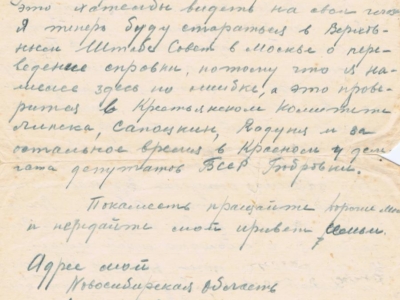 это я хотелбы видеть на свои глаза
Я теперь буду стараться в Верхов-
нном Штабе Совет в Москве о пере-
ведение справки, потому что я на-
месте здесь по ошибке, а это прове-
ритця в Крестьянском Комитете
Липска, Сапоцкин, и за
остальное время в Красном у
депутатов БССР
Покаместь пращайте
и передайте мой привет семьи.
Адрес мой
Новосибирская область